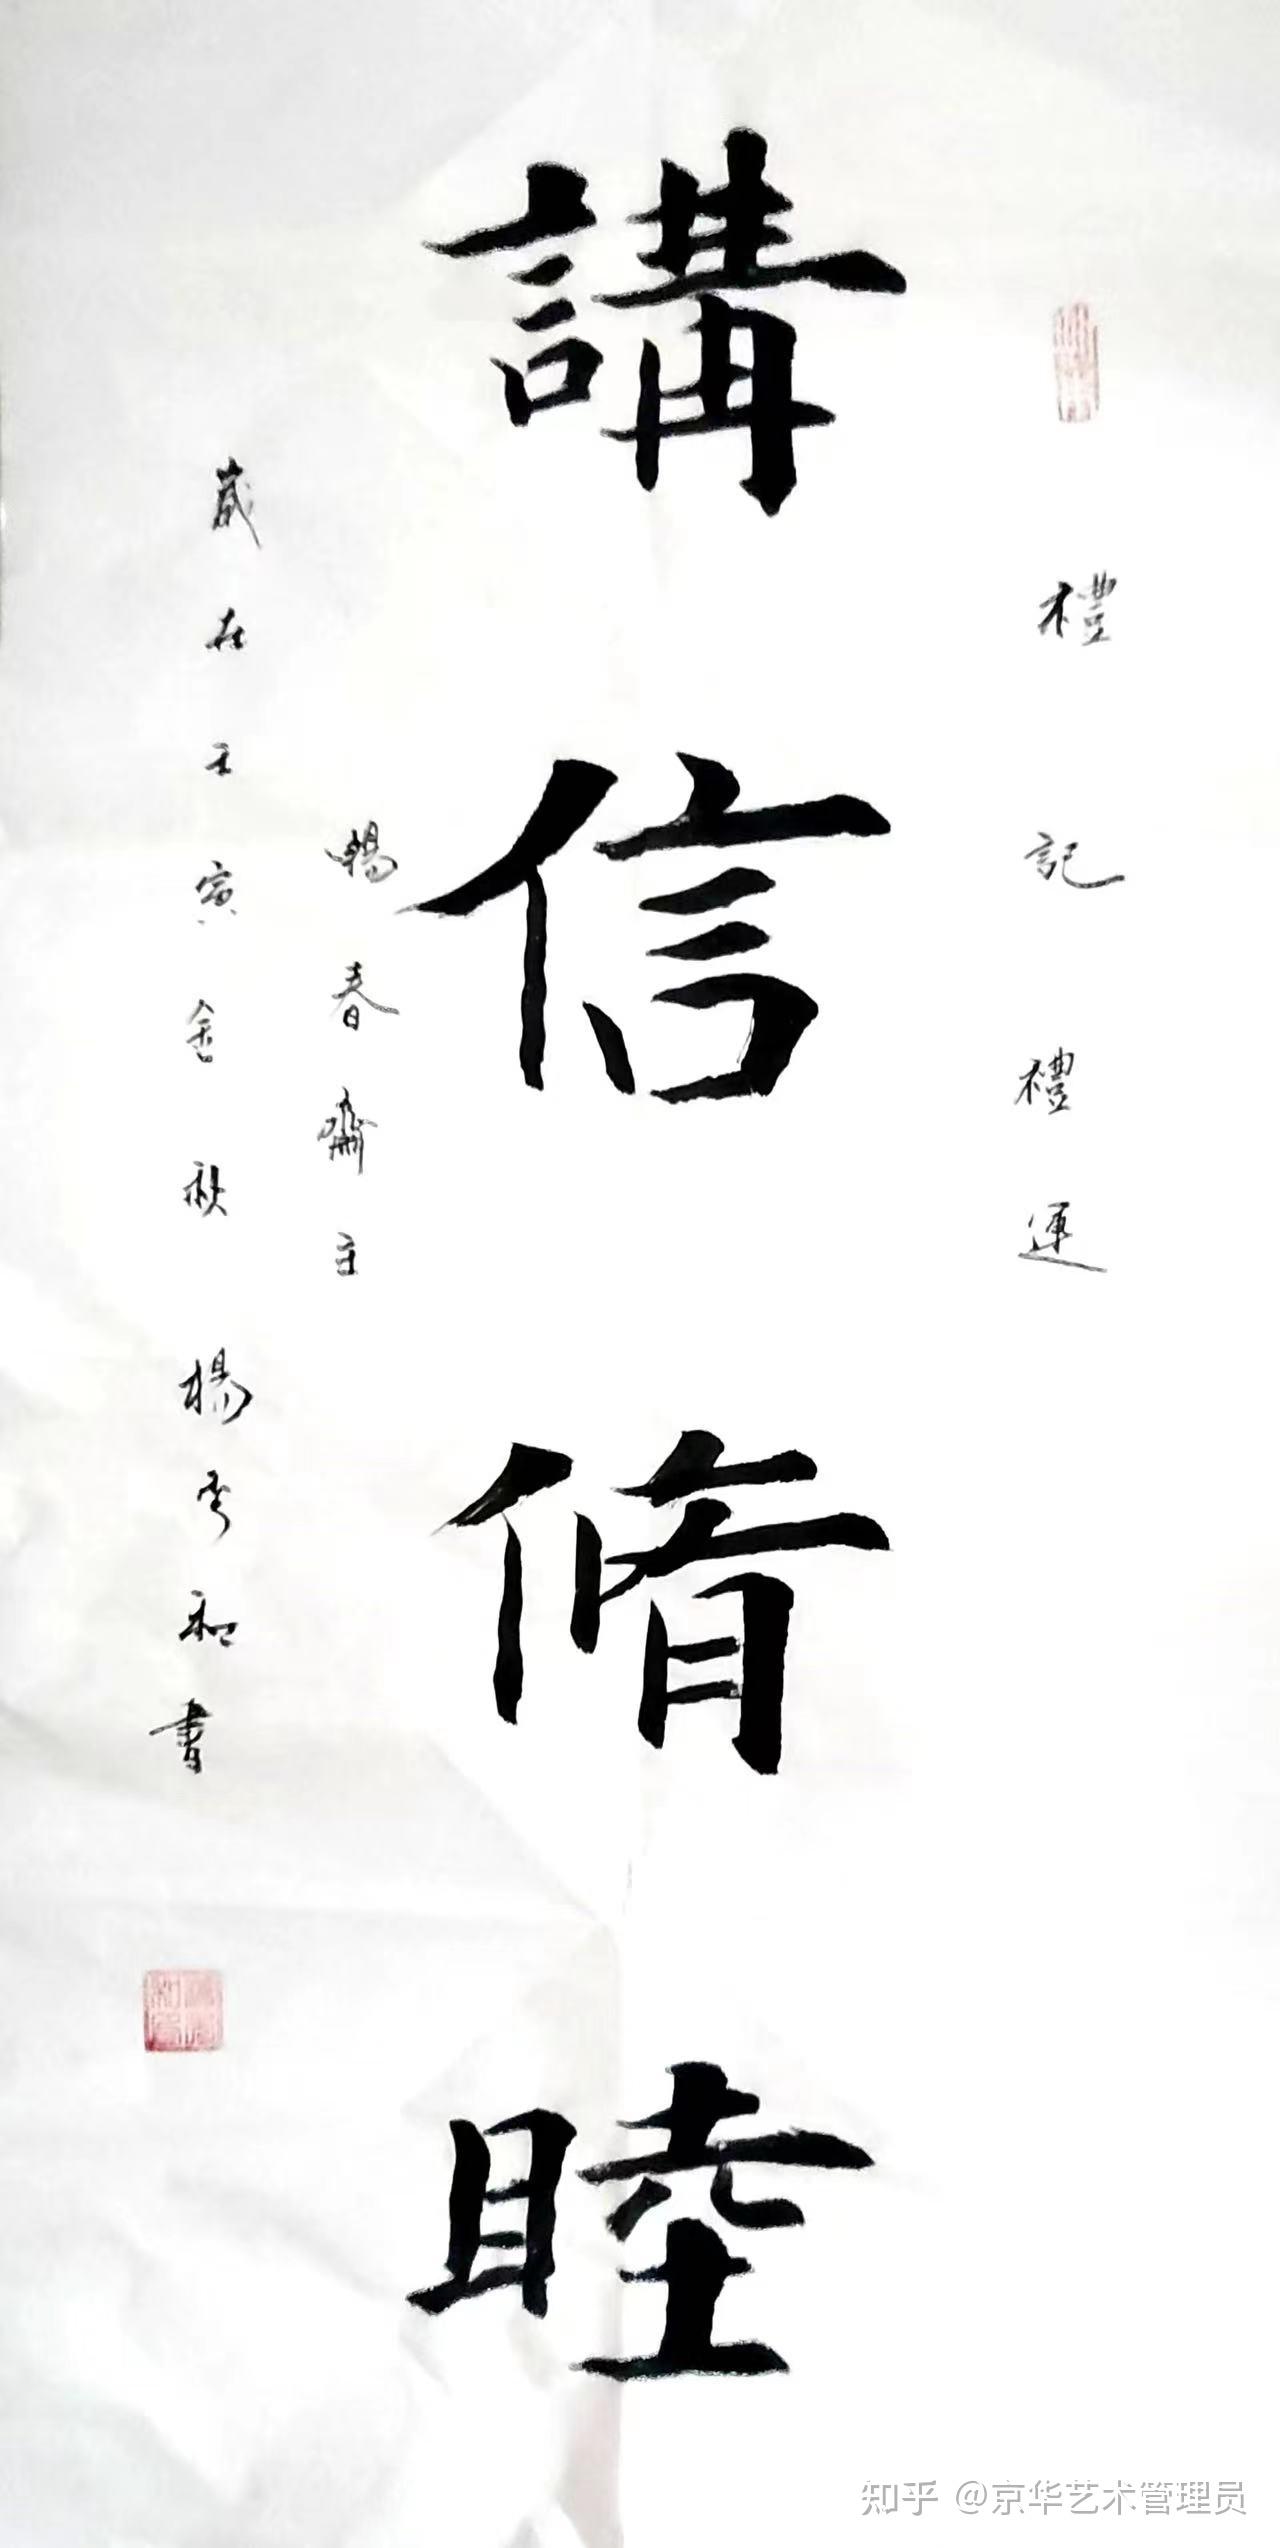 禮記禮運
講信脩睦
暢春齋主
歲在壬寅金秋 楊秀和書
知乎 @京华艺术管理员